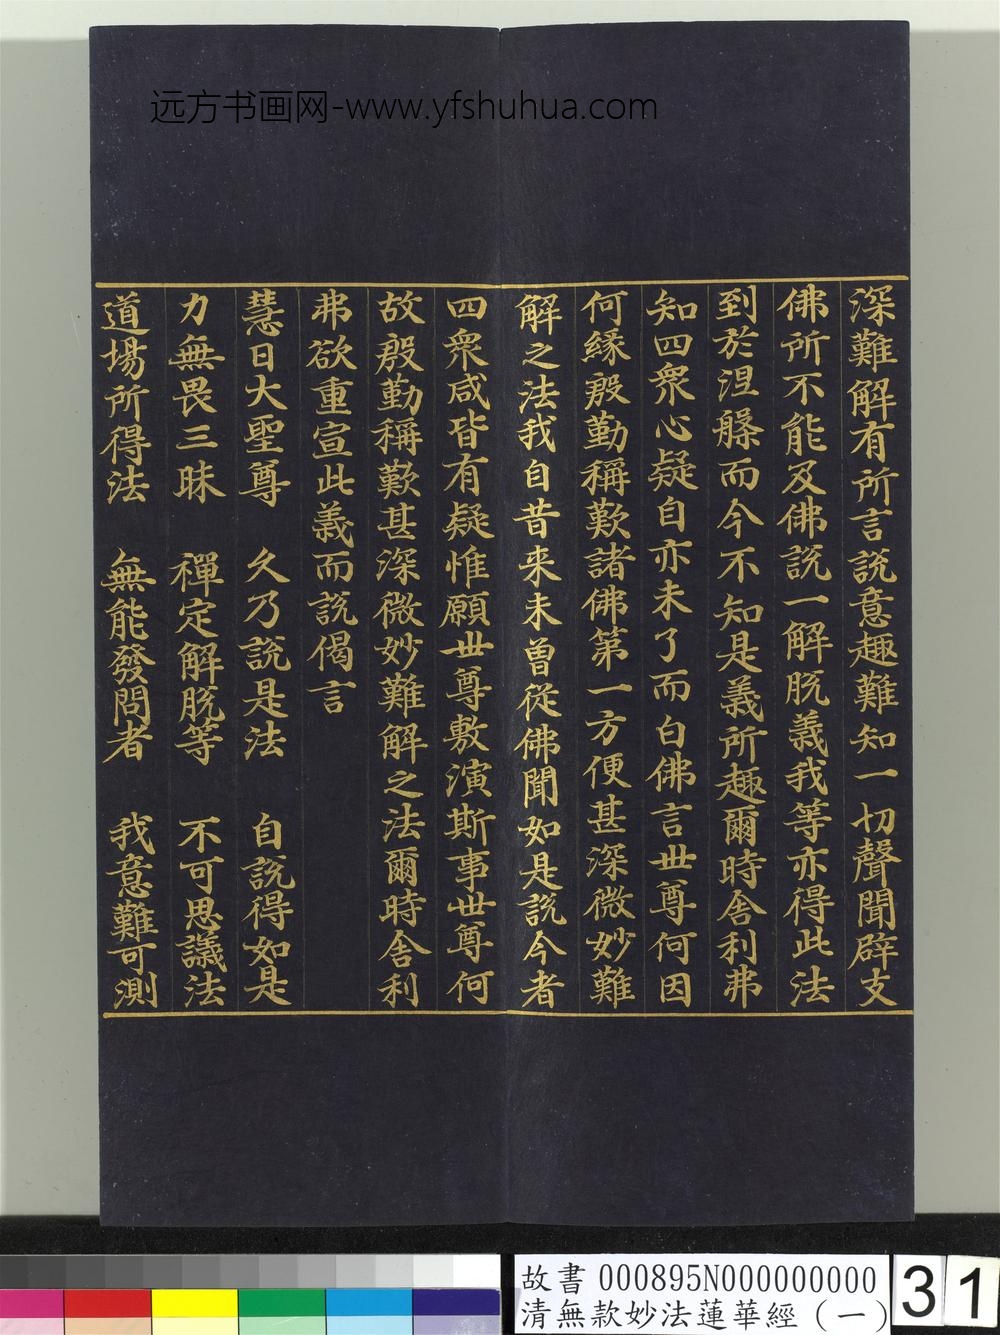 远方书画网-www.yfshuhua.com
深難解有所言說意趣難知一切聲聞辟支
佛所不能及佛說一解脫義我等亦得此法
到於涅槃而今不知是義所趣爾時舍利弗
知四眾心疑自亦未了而白佛言世尊何因
何緣殷勤稱歎諸佛第一方便甚深微妙難
解之法我自昔来未曾從佛聞如是說今者
四眾咸皆有疑惟願世尊敷演斯事世尊何
故殷勤稱歎甚深微妙難解之法爾時舍利
弗欲重宣此義而說偈言
慧日大聖尊 久乃說是法 自說得如是
力無畏三昧 禪定解脫等 不可思議法
道場所得法 無能發問者 我意難可測
故書 000895N000000000
清無款妙法蓮華經（一）
31